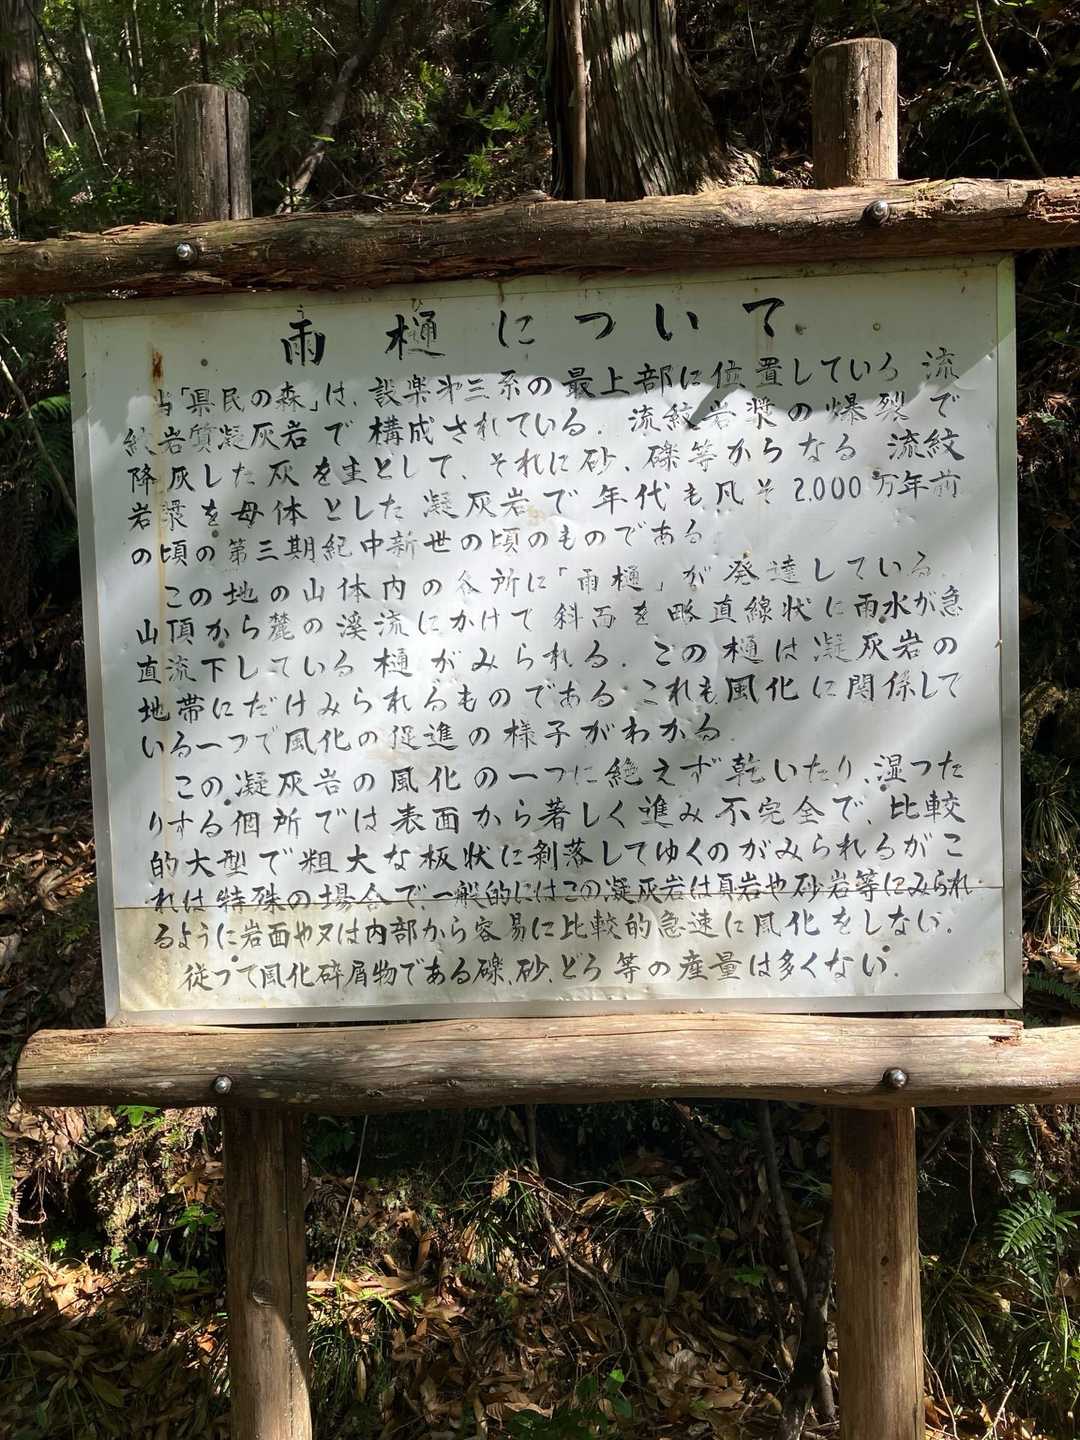 雨樋について
当「県民の森」は、設楽第三系の最上部に位置している流
紋岩質凝灰岩で構成されている。流紋岩漿の爆裂で
降灰した灰を主として、それに砂、礫等からなる流紋
岩漿を母体とした凝灰岩で年代も凡そ2,000万年前
の頃の第三期紀中新世の頃のものである
この地の山体内の各所に「雨樋」が発達している。
山頂から麓の溪流にかけて斜面を略直線状に雨水が急
直流下している樋がみられる。この樋は凝灰岩の
地帯にだけみられるものである これも風化に関係して
いる一つで風化の促進の様子がわかる
この凝灰岩の風化の一つに絶えず乾いたり、湿つた
りする個所では表面から著しく進み不完全で、比較
的大型で粗大な板状に剥落してゆくのがみられるがこ
れは特殊の場合で、一般的にはこの凝灰岩は頁岩や砂岩等にみられ
るように岩面や又は内部から容易に比較的急速に風化をしない。
従つて風化碎屑物である礫、砂、どろ等の産量は多くない。